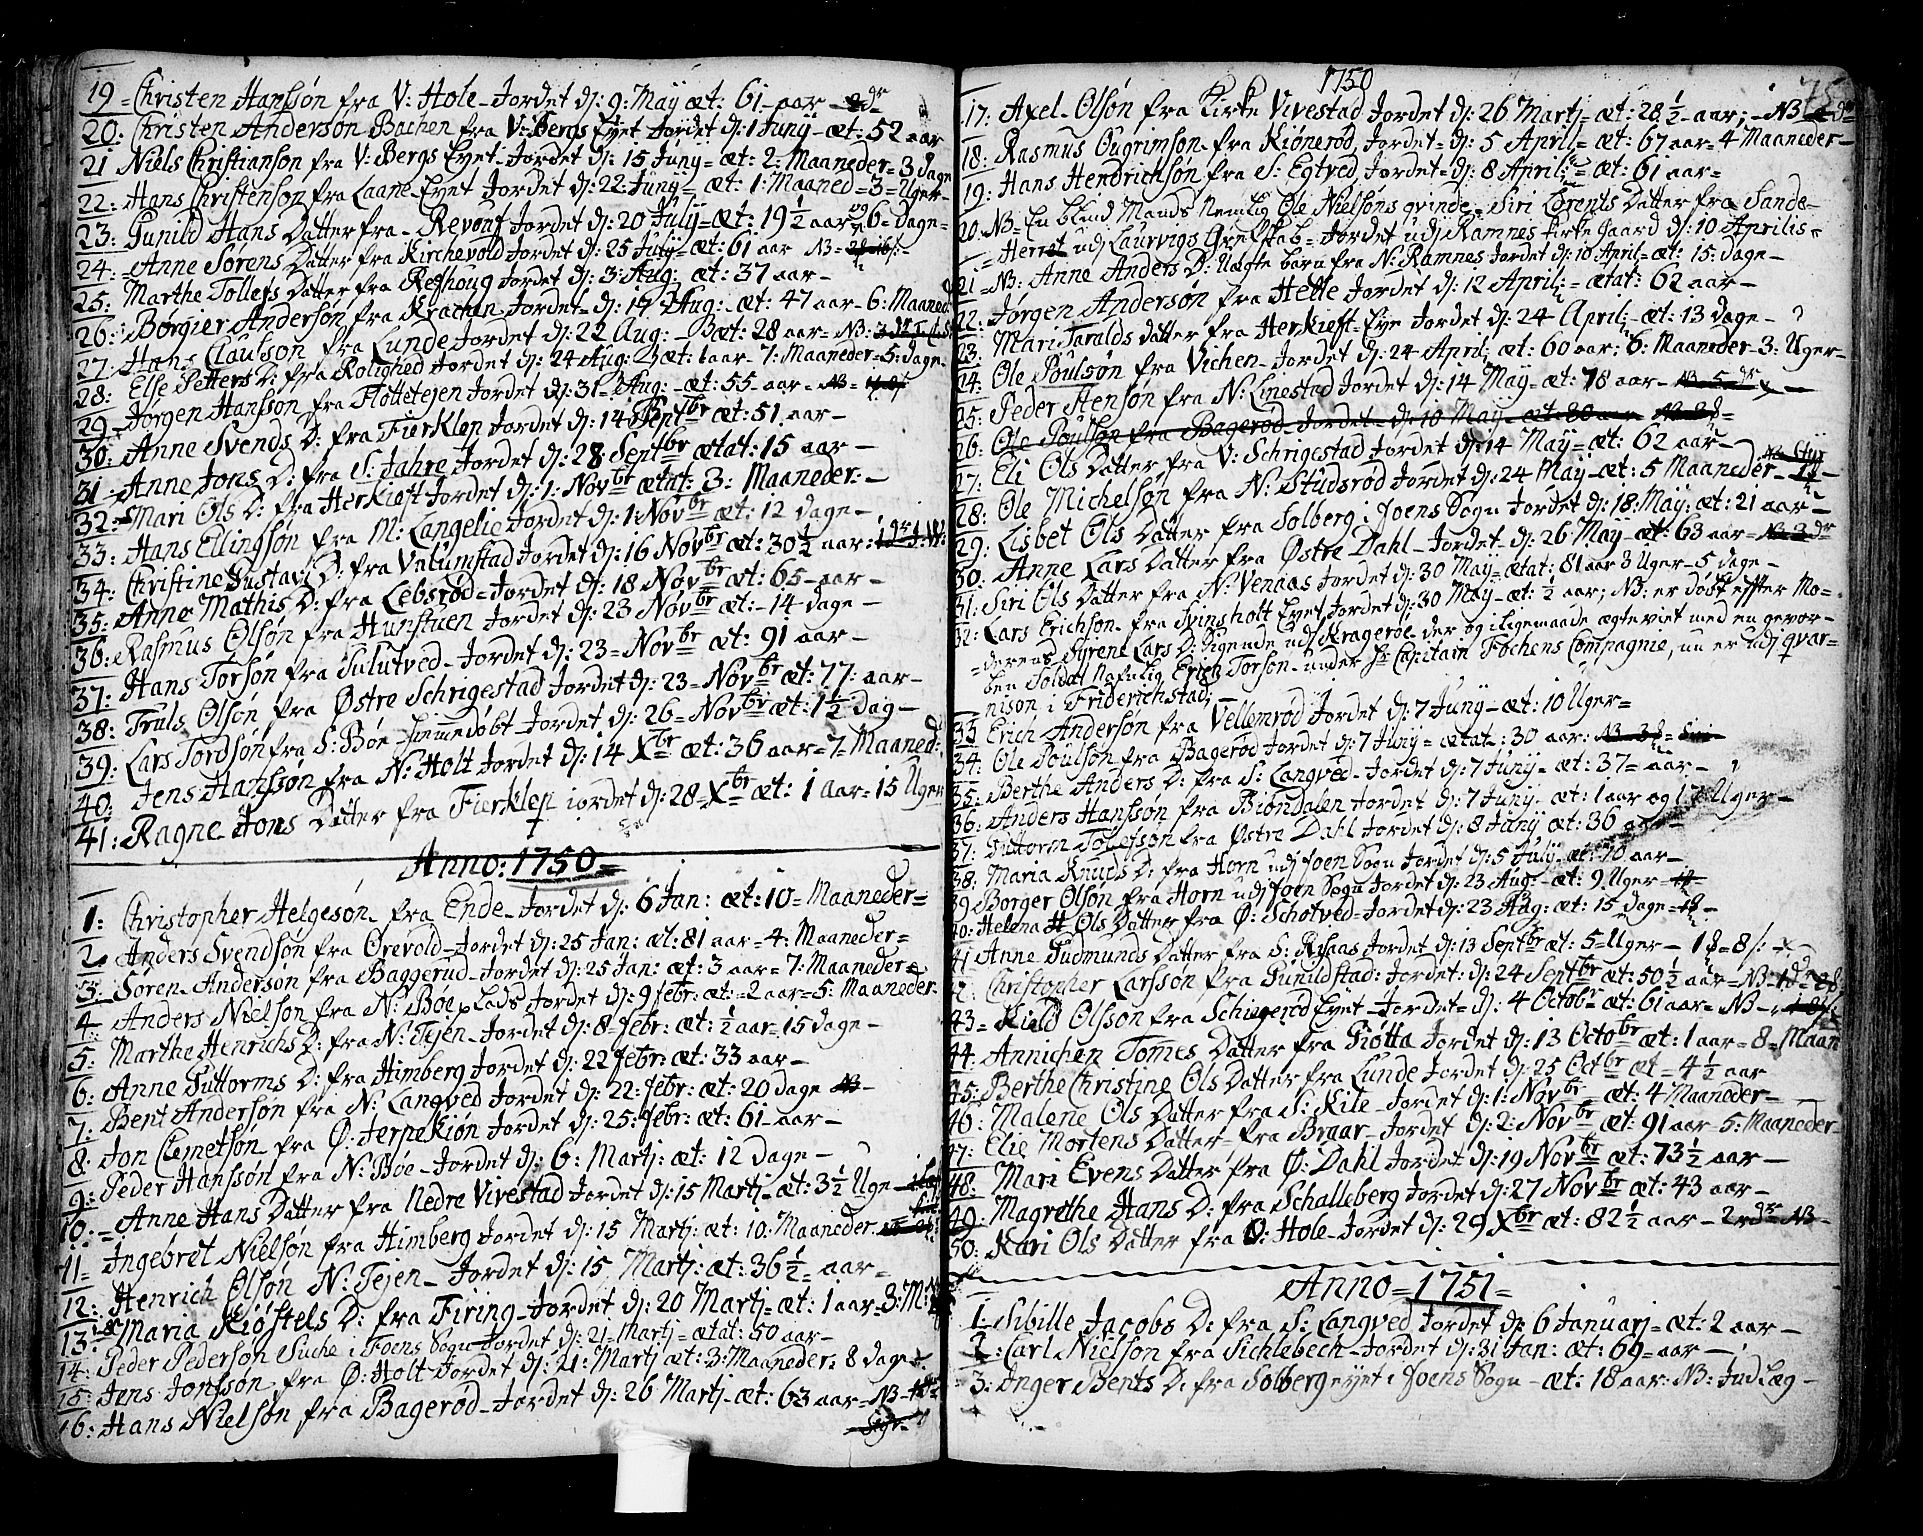 19 = Christen Hansøn fra V: Hole - Jordet dj: 9: May æt: 61 - aar - 2 dr
20: Christen Andersøn Bachen fra V: Bergs Eyet Jordet dj: 1 Junij - æt: 52 aar
21 Niels Christiansøn fra V: Bergs Eyet - Jordet dj: 15 Juny = æt: 2: Maaneder = 3 dage
22: Hans Christensøn fra Laane - Eyet Jordet dj: 22: Junij = æt: 1: Maaned = 3 = Uger -
23: Gunild Hans Datter fra - Revouf Jordet dj: 20 July = æt: 19 1/2 aar og 6 = Dage =
24: = Anne Sørens Datter fra Kirchevold Jordet dj: 25 July = æt: 61 aar N3 =
25: Marthe Tollefs Datter fra Refshoug Jordet dj: 3: Aug: æt: 37 aar -
26: Børgier Andersøn fra Krachen Jordet = dj: 17 Aug: æt: 47 aar - 6: Maaned
27: Hans Clausøn fra Lunde Jordet dj: 22 Aug: - æt: 28 aar = N3:
28: Else Petters D: fra Rolighed Jordet dj: 24 Aug: æt: 1 aar - 7: Maaneder = 5: dage -
29 Jørgen Hansøn fra Flottetejen Jordet dj: 31 - Aug: - æt: 55 - aar = N3 =
30: Anne Svends D: fra Fierklep Jordet dj: 14 Septbr æt: 51 aar -
31 - Anne Jons D: fra S: Jahre Jordet dj: 28 Septbr ætat: 15 aar -
32: Mari Ols D: fra Herkiøft Jordet dj: 1: Novbr ætat: 3: Maaneder: -
33: Hans Ellingsøn fra M: Langelie Jordet dj: 1 Novbr æt: 12 dage -
34: Christine Gustavs D: fra Valumstad Jordet dj: 16 Novbr æt: 30 1/2 aar:
35: Anne Mathis D: fra Lebsrød = Jordet dj: 18 Novbr æt: 65 - aar -
36: Rasmus Olsøn fra Hunstuen Jordet dj: 23 Novbr æt: - 14 dage -
37: Hans Torsøn fra Sulutved - Jordet dj: 23 - Novbr æt: 91 aar -
38: Truls Olsøn fra Østre Schrigestad Jordet dj: 23 - Novbr æt: 77: aar -
39: Lars Tordsøn fra S: Bøe hiemmedøbt - Jordet dj: 26 = Novbr æt: 1 1/2 Dag -
40: Jens Hansøn fra N: Holt Jordet dj: 14 Xbr æt: 36 aar = 7 = Maaned:
41: Ragne Jons Datter fra Fierklep iordet dj: 28 = Xbr æt: 1 Aar = 15 Uger
Anno: 1750 =
1: Christopher Helgesøn - fra Ende - Jordet dj: 6 Jan: æt: 10 = Maaneder =
2 Anders Svendsøn fra Orevold - Jordet dj: 25 Jan: æt: 81 aar = 4: Maaneder =
3: Søren Andersøn fra Baggerud - Jordet dj: 25 Jan: æt: 3 aar = 7: Maaneder =
4 Anders Nielsøn fra N: Bøe plads Jordet dj: 9 febr: æt: = 2 aar = 5: Maaneder.
5: Marthe Henrichs D: fra N: Tejen - Jordet dj: 8 - febr: æt: 1/2 aar = 15 dage -
6: Anne Guttorms D: fra Himberg Jordet dj: 22 febr: æt: 33 aar -
7: Bent Andersøn fra N: Langved Jordet dj: 22: febr: æt: 20 dage N3 -
8: Jon Clemetsøn - fra Ø: Jerpekiøn Jordet dj: 25: febr: æt: 61 - aar -
9: Peder Hansøn fra N: Bøe - Jordet dj: 6: Martj: æt: 12 dage -
10: = Anne Hans Datter fra Nedre Vivestad Jordet dj: 15 Martj - æt: 3 1/2 Uge
11 = Ingebret Nielsøn fra Himberg Jordet dj: 15 Martj: æt: 10: Maaneder
12: Henrich Olsøn N: Tejen - Jordet dj: 15 Martj: æt: 36 1/2 = aar =
13: Maria Kiøstels D: fra Firing - Jordet dj: 20 Martj = æt: 1 aar = 3: M:
14: Peder Pedersøn Suche i Foens Sogn Jordet dj: 21 Martj = ætat: 50 aar -
15: Jens Jonsøn - fra Ø: Holt Jordet dj: 21: Martj æt: 3: Maaneder: 8 dage
16: Hans Nielsøn fra Bagerød - Jordet dj: 26 Martj - æt: 63 aar = N3
1750
75
17: Axel - Olsøn fra Kirke Vivestad Jordet dj: 26 Martj = æt: 28 1/2 - aar; - N3
18: Rasmus Gugrimsøn - fra Kiønerød, Jordet = dj: 5 April = æt: 67 aar = 4 Maaneder -
19: Hans Hendrichsøn fra S: Egtved Jordet = dj: 8 April: = æt: 61 aar =
20: N3 = En blind Mands Nemlig Ole Nielsøns qvinde - Siri Lorents Datter fra Sande =
= Herret udj Laurvigs Grefskab = Jordet udj Ramnes kirke Gaard dj: 10 Aprilis =
21 = N3: Anne Anders D: Uægte barn fra N: Ramnes Jordet dj: 10 April = æt: 15: dage -
22: Jørgen Andersøn fra Helle Jordet dj: 12 April: = ætat: 62 aar -
23: Mari Taralds datter fra Herkieft = Eye Jordet dj: 24 April: - æt: 13 dage -
24: Ole Poulsøn fra Vichen - Jordet dj: 24 April; æt: 60 aar; 6: Maaneder - 3: Uger -
25: Peder Stensøn fra N: Linestad Jordet dj: 14 May - æt: 78 aar - N3 5 dr
26: Ole Poulsøn fra Bagerød Jordet dj: 10 May æt 30 aar
27: Eli Ols Datter fra V: Schrigestad Jordet dj: 14 May = æt: 62 aar -
28: Ole Michelsøn fra N: Studsrød Jordet dj: 24 May - æt: 5 Maaneder
29: Lisbet Ols Datter fra Solberg i foens Sogn Jordet dj: 18: May: æt: 21 aar -
30: Anne Lars Datter fra Østre Dahl - Jordet - dj: 26 May - æt: 63 aar = N3 3 dr
31: Siri Ols Datter fra N: Venaas Jordet dj: 30 May = ætat: 81 aar 3 Uger - 5 dage -
32: Lars Erichsøn - fra Svinsholt Eyet Jordet dj: 30 May - æt: 1/2 aar; N3: er døbt effter Mo =
= derens Syren Lars D: Sigende udj Kragerøe der og iligemaade ægteviet med en gevor =
ben Soldat Nafnlig Erich Torsøn - under Hr Capitain Fochens Compagnie, nu er udj qvar =
nison i Friderichstad; -
33 Erich Andersøn fra Vellemrød Jordet dj: 7 Juny - æt: 10 Uger =
34: Ole Poulsøn fra Bagerød Jordet dj: 7 Juny = ætat: 30 aar:
35: Berthe Anders D: fra S: Langved - Jordet dj: 7 Juny - æt: 37 = aar -
36: Anders Hansøn fra Biøndalen Jordet dj: 7 Juny - æt: 1 aar og 17 Uger -
37: Guttorm Tollefsøn fra Østre Dahl Jordet dj: 8 Juny æt: 36 aar -
38: Maria Knuds D: fra Horn udj foen Sogn Jordet dj: 5 July = æt: 70 aar -
39 Borger Olsøn fra Horn udj foen Sogn Jordet dj: 23 Aug: - æt: 9 Uger -
40: Helena Ols Datter fra Ø: Schotved - Jordet dj: 23 Aug: æt: 15 dage =
41 Anne Gudmunds Datter fra S: Raaas Jordet dj: 13 Septbr æt: 5 = Uger -
Christopher Larsøn fra Gunildstad: Jordet: dj: 24 Septbr æt: 50 1/2 aar = N3
43 = Kield Olsøn fra Schiegerød Eyet - Jordet = dj: 4 Octobr æt: 61 aar = N3 -
44 Annichen Tomes Datter fra Giøtta Jordet dj: 13 Octobr æt: 1 aar = 8 = Maan
45: Berthe Christine Ols Datter fra Lunde Jordet dj: 25 Octbr æt = 4 1/2 aar
46: Malene Ols Datter fra S: Kile - Jordet dj: 1: Novbr - æt: 4 Maaneder -
47: Elie Mortens Datter = fra Braar - Jordet dj: 2: Novbr æt: 91 aar 5: Maaneder
48: Mari Evens Datter fra Ø: Dahl Jordet dj: 19 Novbr æt: 73 1/2 aar -
49: Magrethe Hans D: fra Schalleberg Jordet dj: 27 Novbr æt: 43 aar -
50: Kari Ols Datter fra O: Hole - Jordet dj: 29 Xbr æt: 82 1/2 aar - 2 dr N3
Anno = 1751 =
1: Sibille Jacobs D: fra S: Langved Jordet dj: 6 Januarj = æt: 2 aar -
2: Carl Nielsøn fra Sichlebech - Jordet dj: 31 Jan: æt: 69 = aar -
3: Inger Bents D: fra Solberg eyet i foens Sogn - æt: 18 aar: N3: Judlæg -